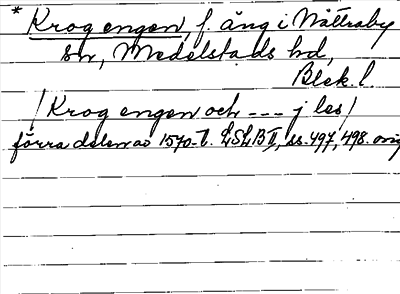 * Krogengen, f. äng i Nättraby
sn, Medelstads hd,
Blek. l.
/Krogengen och --- j les/
förra delen av 1570-t. LSLB II, ss. 497, 498. orig